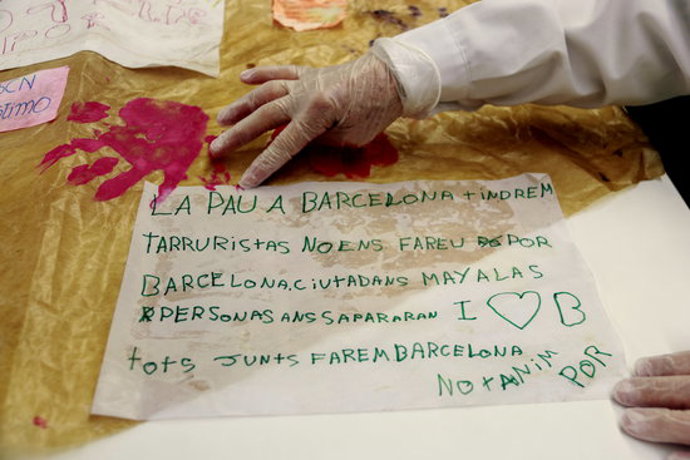 BCN
ÒTIMO
LA PAU A BARCELONA tINDREM
TARRURIStAS NO ENS FAREU POR
BARCELONA, CIUTADANS MAY ALAS
PERSONAS ANS SAPARARAN I ♡ B
tots JUNTS FAREM BARCELONA
NO tANIM POR